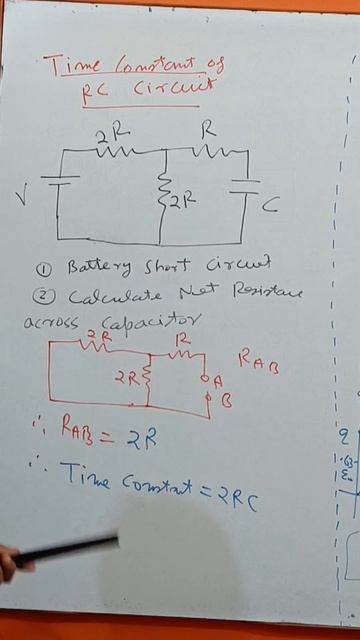 Time Constant of
RC Circuit
2R
R
V
2R
C
① Battery Short Circuit
② Calculate Net Resistance
across Capacitor
2R
R
R_AB
2R
A
B
∴ R_AB = 2R
∴ Time Constant = 2RC
q